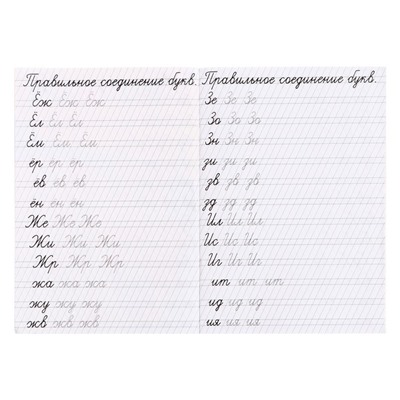 Правильное соединение букв.
Ёж Ёж Ёж
Ёл Ёл Ёл
Ём Ём Ём
ёр ёр ёр
ёв ёв ёв
ён ён ён
Же Же Же
Жи Жи Жи
Жр Жр Жр
жа жа жа
жу жу жу
жв жв жв
Правильное соединение букв.
Зе Зе Зе
Зо Зо Зо
Зн Зн Зн
зи зи зи
зв зв зв
зд зд зд
Ил Ил Ил
Ис Ис Ис
Иг Иг Иг
ит ит ит
ид ид ид
ия ия ия